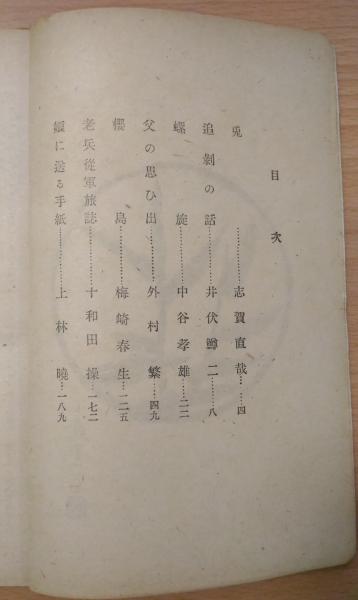 目次
兎…………志賀直哉……四
追剝の話…………井伏鱒二……八
螺旋…………中谷孝雄……二二
父の思ひ出…………外村繁……四九
櫻島…………梅崎春生……一二五
老兵從軍旅誌…………十和田操……一七二
嬬に送る手紙…………上林曉……一八九